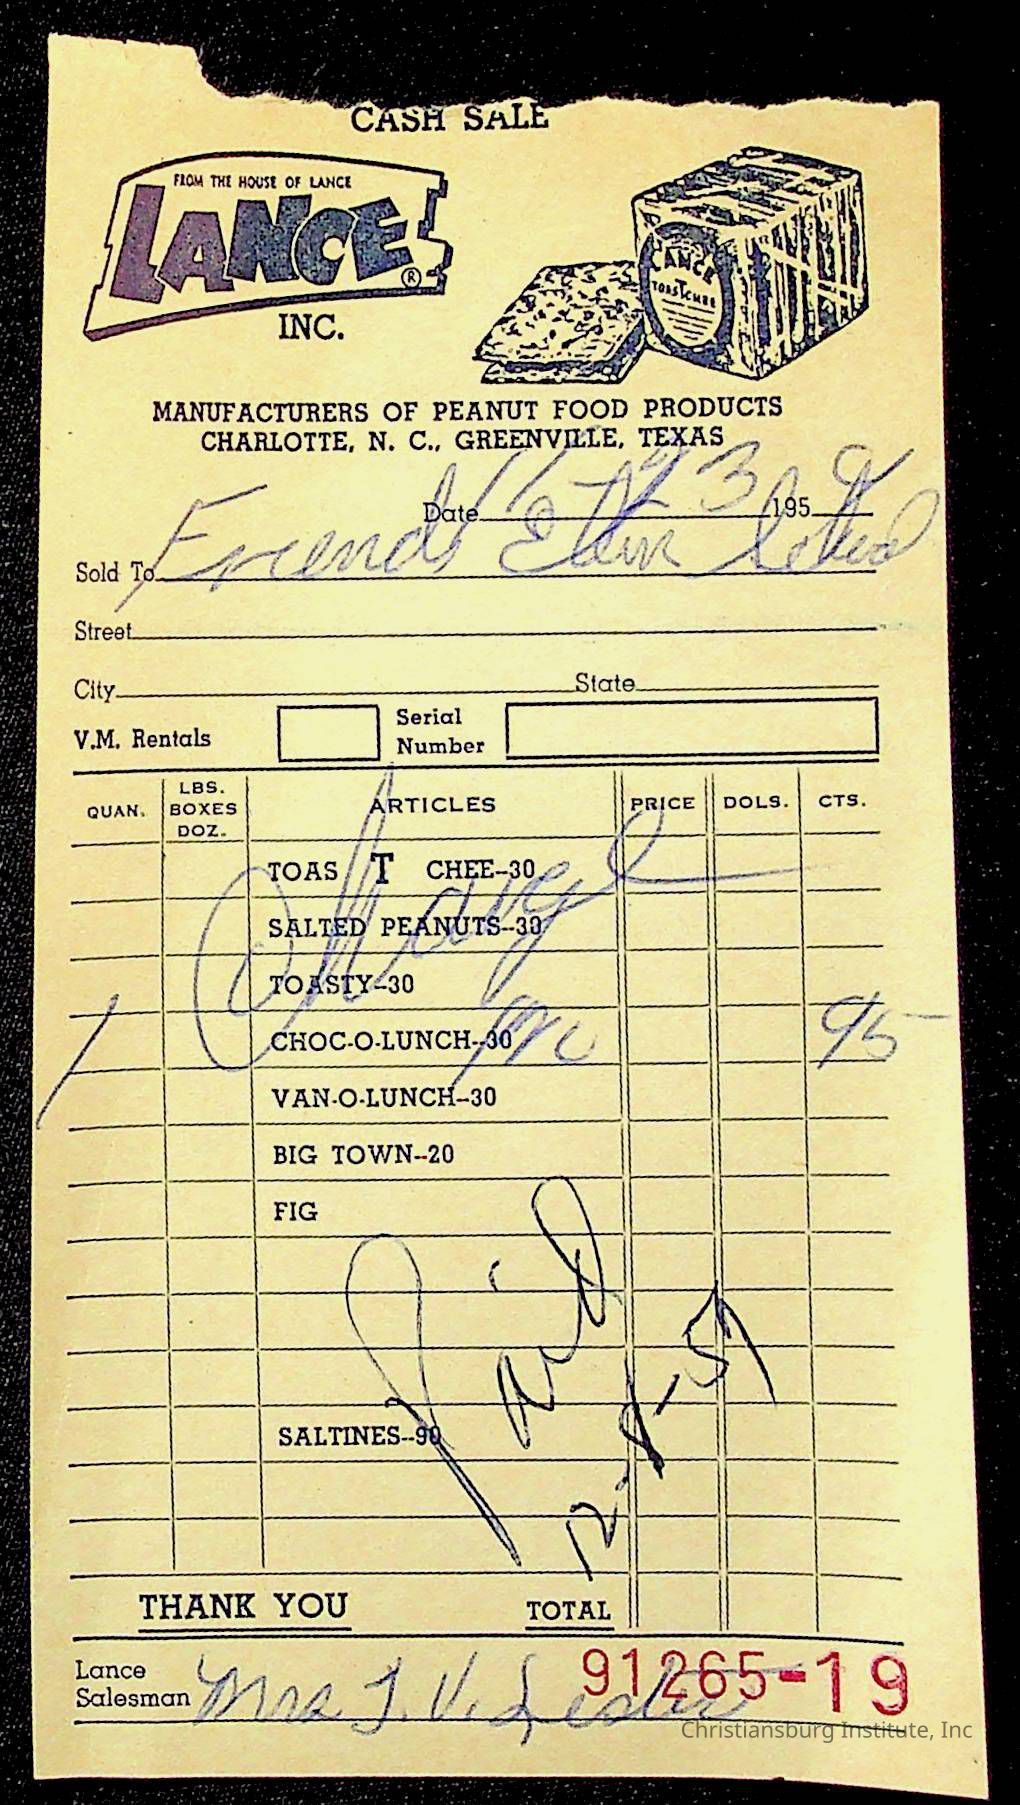 CASH SALE
FROM THE HOUSE OF LANCE
LANCE ®
INC.
LANCE
TOASTCHEE
MANUFACTURERS OF PEANUT FOOD PRODUCTS
CHARLOTTE, N. C., GREENVILLE, TEXAS
Date 11 23 195 9
Sold To Friends Elem School
Street
City State
V.M. Rentals Serial Number
QUAN. LBS. BOXES DOZ. ARTICLES PRICE DOLS. CTS.
Charge
TOAS T CHEE--30
SALTED PEANUTS--30
TOASTY--30
1 CHOC-O-LUNCH--30 95
VAN-O-LUNCH--30
BIG TOWN--20
FIG
Paid
SALTINES--90
THANK YOU TOTAL
Lance Salesman Mrs. J. V.
91265-19
Christiansburg Institute, Inc